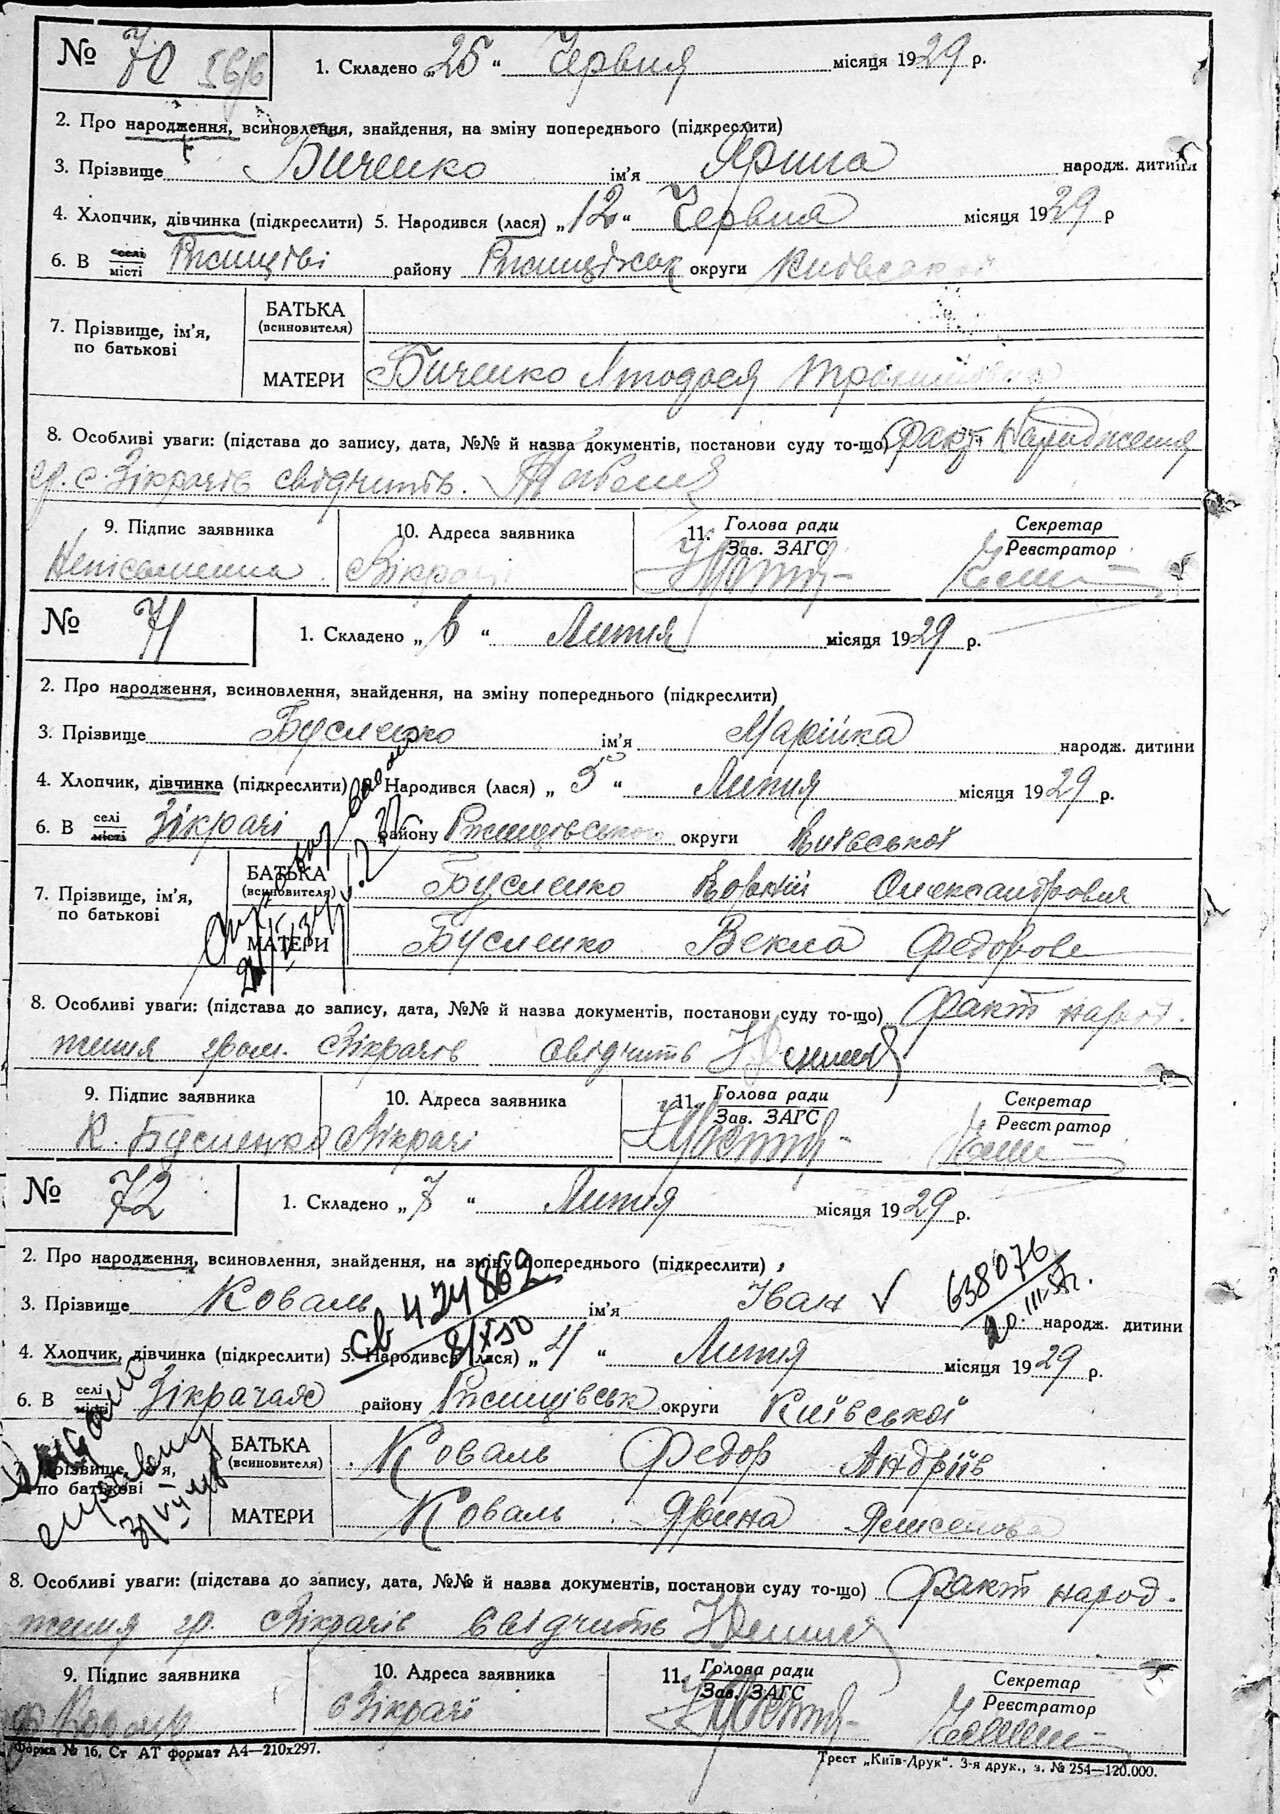 № 70
1. Складено „25“ Червня місяця 1929 р.
2. Про народження, всиновлення, знайдення, на зміну попереднього (підкреслити)
3. Прізвище Биченко ім'я Ярина народж. дитини
4. Хлопчик, дівчинка (підкреслити) 5. Народився (лася) „12“ Червня місяця 1929 р
6. В селі місті Ржищеві району округи Київської
7. Прізвище, ім'я, по батькові
БАТЬКА (всиновителя)
МАТЕРИ Биченко
8. Особливі уваги: (підстава до запису, дата, №№ й назва документів, постанови суду то-що) Факт Народження
гр. с. Зікрачів свідчить.
9. Підпис заявника 10. Адреса заявника 11. Голова ради Зав. ЗАГС Секретар Реєстратор
Неписьменна Зікрачі
№ 71
1. Складено „6“ Липня місяця 1929 р.
2. Про народження, всиновлення, знайдення, на зміну попереднього (підкреслити)
3. Прізвище Бусленко ім'я Марійка народж. дитини
4. Хлопчик, дівчинка (підкреслити) 5. Народився (лася) „5“ Липня місяця 1929 р.
6. В селі місті Зікрачі району Ржищівського округи Київської
7. Прізвище, ім'я, по батькові
БАТЬКА (всиновителя) Бусленко Корній Олександрович
МАТЕРИ Бусленко Векла Федорове
8. Особливі уваги: (підстава до запису, дата, №№ й назва документів, постанови суду то-що) Факт народ.
ження гром. Зікрачів свідчить
9. Підпис заявника 10. Адреса заявника 11. Голова ради Зав. ЗАГС Секретар Реєстратор
К. Бусленко Зікрачі
№ 72
1. Складено „7“ Липня місяця 1929 р.
2. Про народження, всиновлення, знайдення, на зміну попереднього (підкреслити)
св 424862
8/X50
638076
20.III-
3. Прізвище Коваль ім'я Іван народж. дитини
4. Хлопчик, дівчинка (підкреслити) 5. Народився (лася) „4“ Липня місяця 1929 р.
6. В селі місті Зікрачах району Ржищівськ округи Київської
7. Прізвище, ім'я, по батькові
БАТЬКА (всиновителя) Коваль Федор Андріїв
МАТЕРИ Коваль Ярина
8. Особливі уваги: (підстава до запису, дата, №№ й назва документів, постанови суду то-що) Факт народ-
ження гр. Зікрачів свідчить
9. Підпис заявника 10. Адреса заявника 11. Голова ради Зав. ЗАГС Секретар Реєстратор
Ф Коваль с Зікрачі
Форма № 16, Ст АТ формат А4—210х297.
Трест „Київ-Друк“. 3-я друк., з. № 254—120.000.